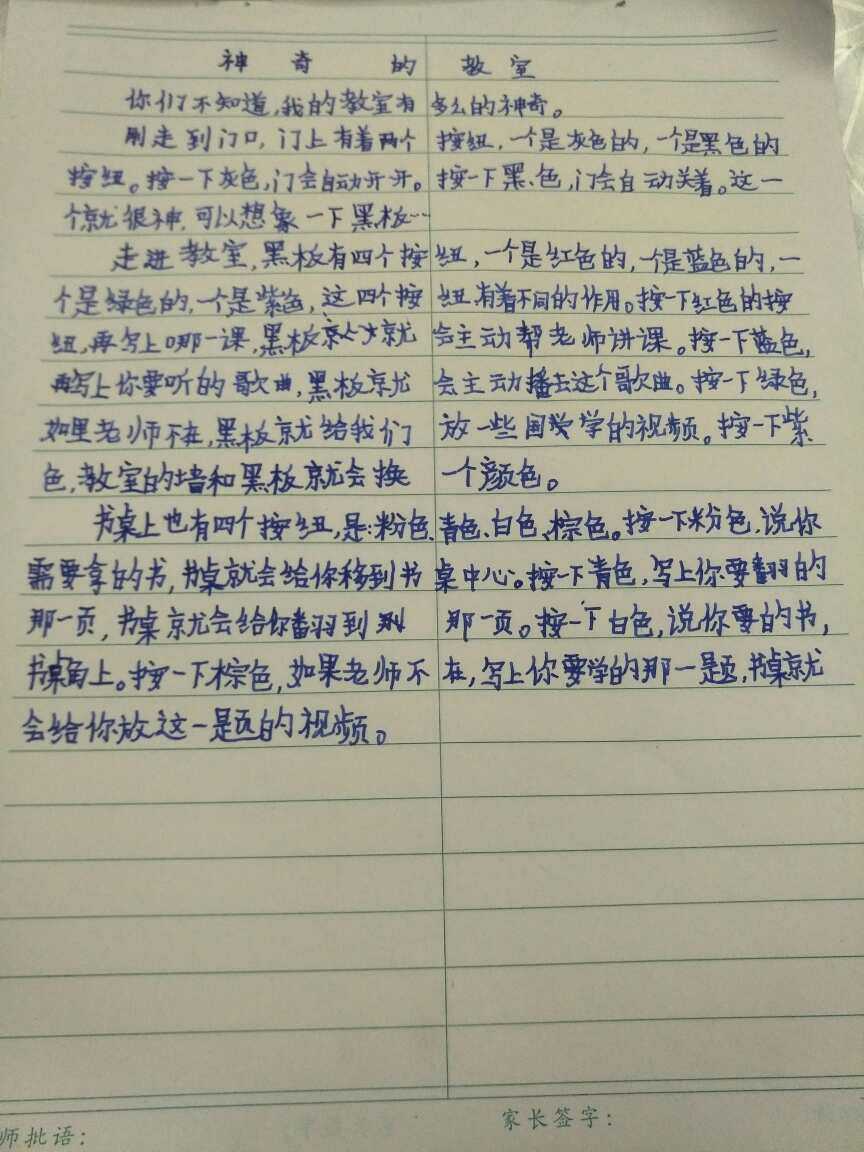 神奇的教室
你们不知道,我的教室有多么的神奇。
刚走到门口,门上有着两个按纽,一个是灰色的,一个是黑色的
按纽。按一下灰色,门会自动开开。按一下黑色,门会自动关着。这一
个就很神,可以想象一下黑板…
走进教室,黑板有四个按纽,一个是红色的,一个是蓝色的,一
个是绿色的,一个是紫色,这四个按纽有着不同的作用。按一下红色的按
纽,再写上哪一课,黑板就会主动帮老师讲课。按一下蓝色,
再写上你要听的歌曲,黑板就会主动播去这个歌曲。按一下绿色,
如果老师不在,黑板就给我们放一些国学的视频。按一下紫
色,教室的墙和黑板就会换一个颜色。
书桌上也有四个按纽,是:粉色、青色、白色、棕色。按一下粉色,说你
需要拿的书,书桌就会给你移到书桌中心。按一下青色,写上你要翻的
那一页,书桌就会给你翻到那一页。按一下白色,说你要的书,
书桌角上。按一下棕色,如果老师不在,写上你要学的那一题,书桌就
会给你放这一题的视频。
师批语:
家长签字: